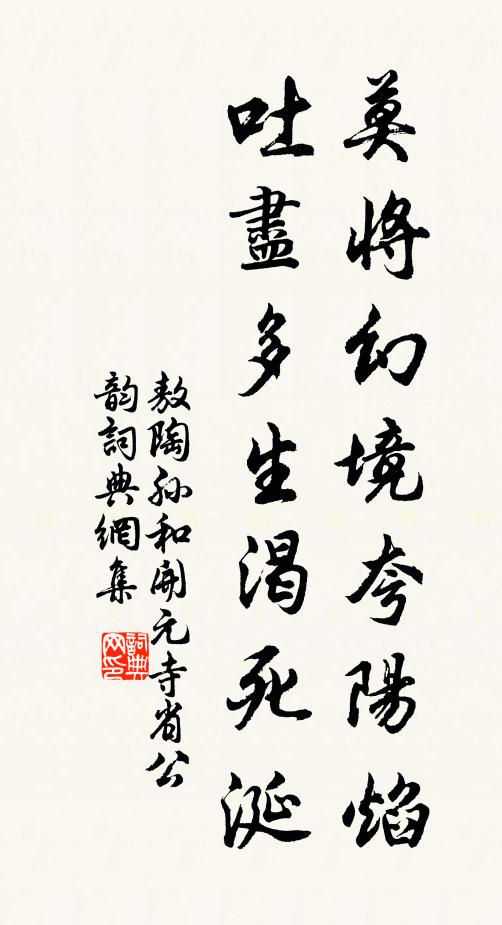 莫將幻境夸陽焰
吐盡多生渴死涎
敖陶孫和開元寺省公
韵詞典網集
詞典
网印